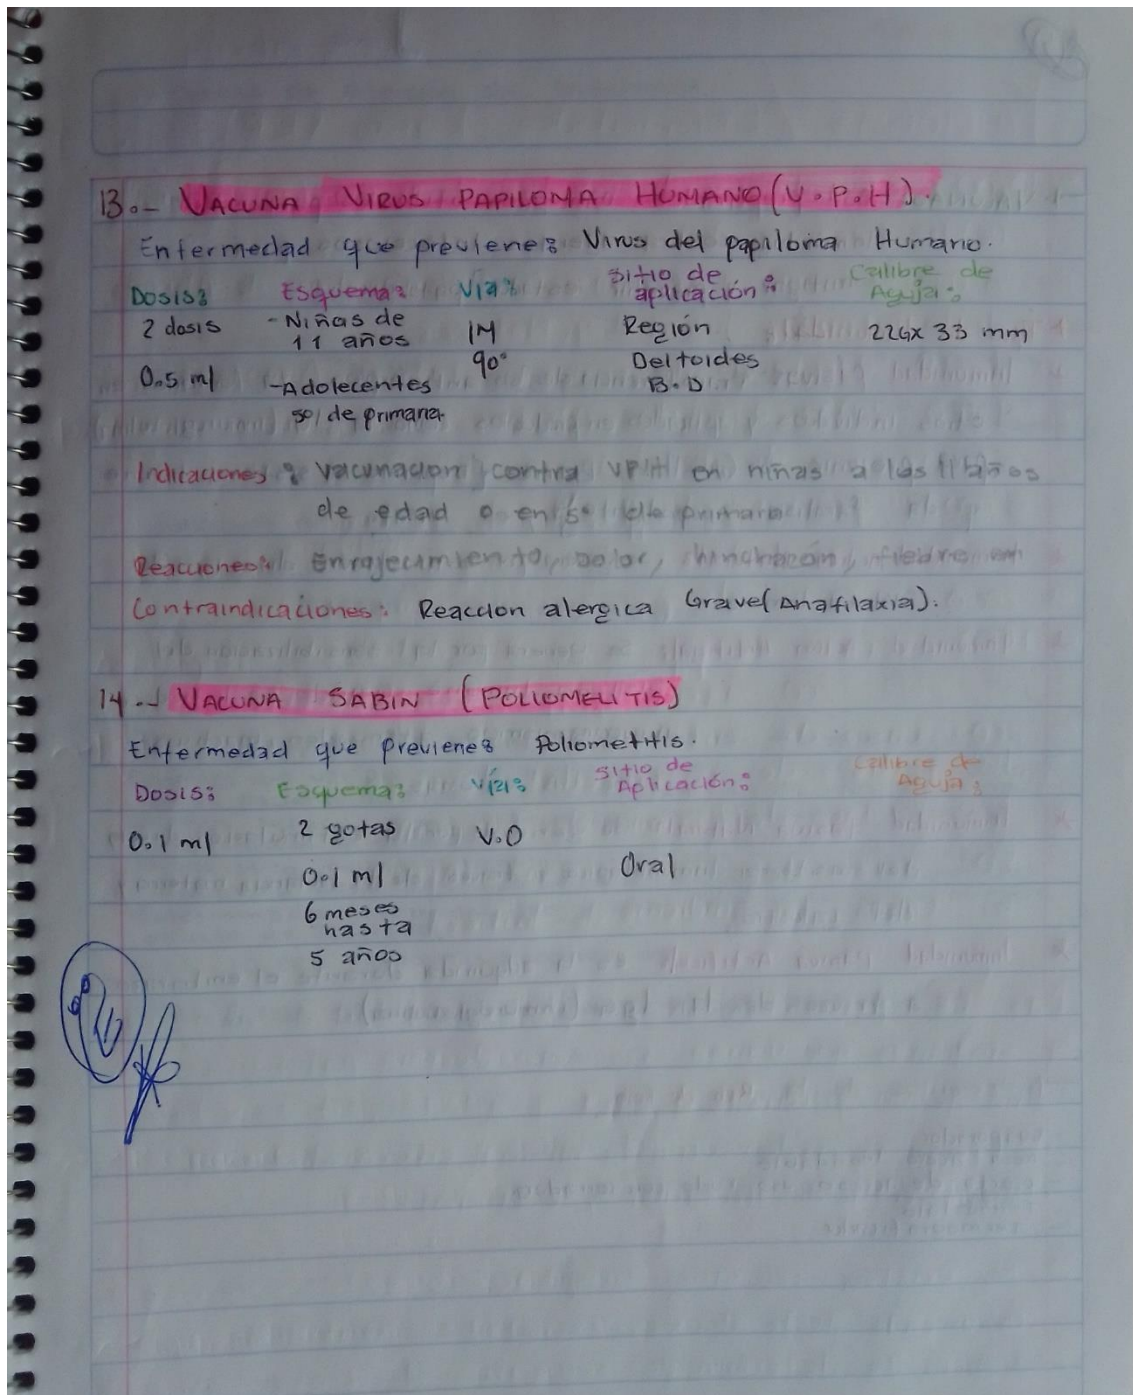 13.- VACUNA VIRUS PAPILOMA HUMANO (V.P.H).
Enfermedad que previene: Virus del papiloma Humano.
Dosis: Esquema: Vía: Sitio de aplicación: Calibre de Aguja:
2 dosis - Niñas de 11 años IM Región 22Gx 33 mm
90° Deltoides
0.5 ml -Adolecentes B.D
5o/ de primaria.
Indicaciones: Vacunacion contra VPH en niñas a las 11 años
de edad o en 5° de primaria
Reacciones: Enrojecimiento, dolor, hinchazón, fiebre
Contraindicaciones: Reaccion alergica Grave (Anafilaxia).
14.- VACUNA SABIN (POLIOMELITIS)
Enfermedad que previene: Poliometitis.
Dosis: Esquema: Vía: Sitio de Aplicación: Calibre de Aguja:
0.1 ml 2 gotas V.O
0.1 ml Oral
6 meses
hasta
5 años